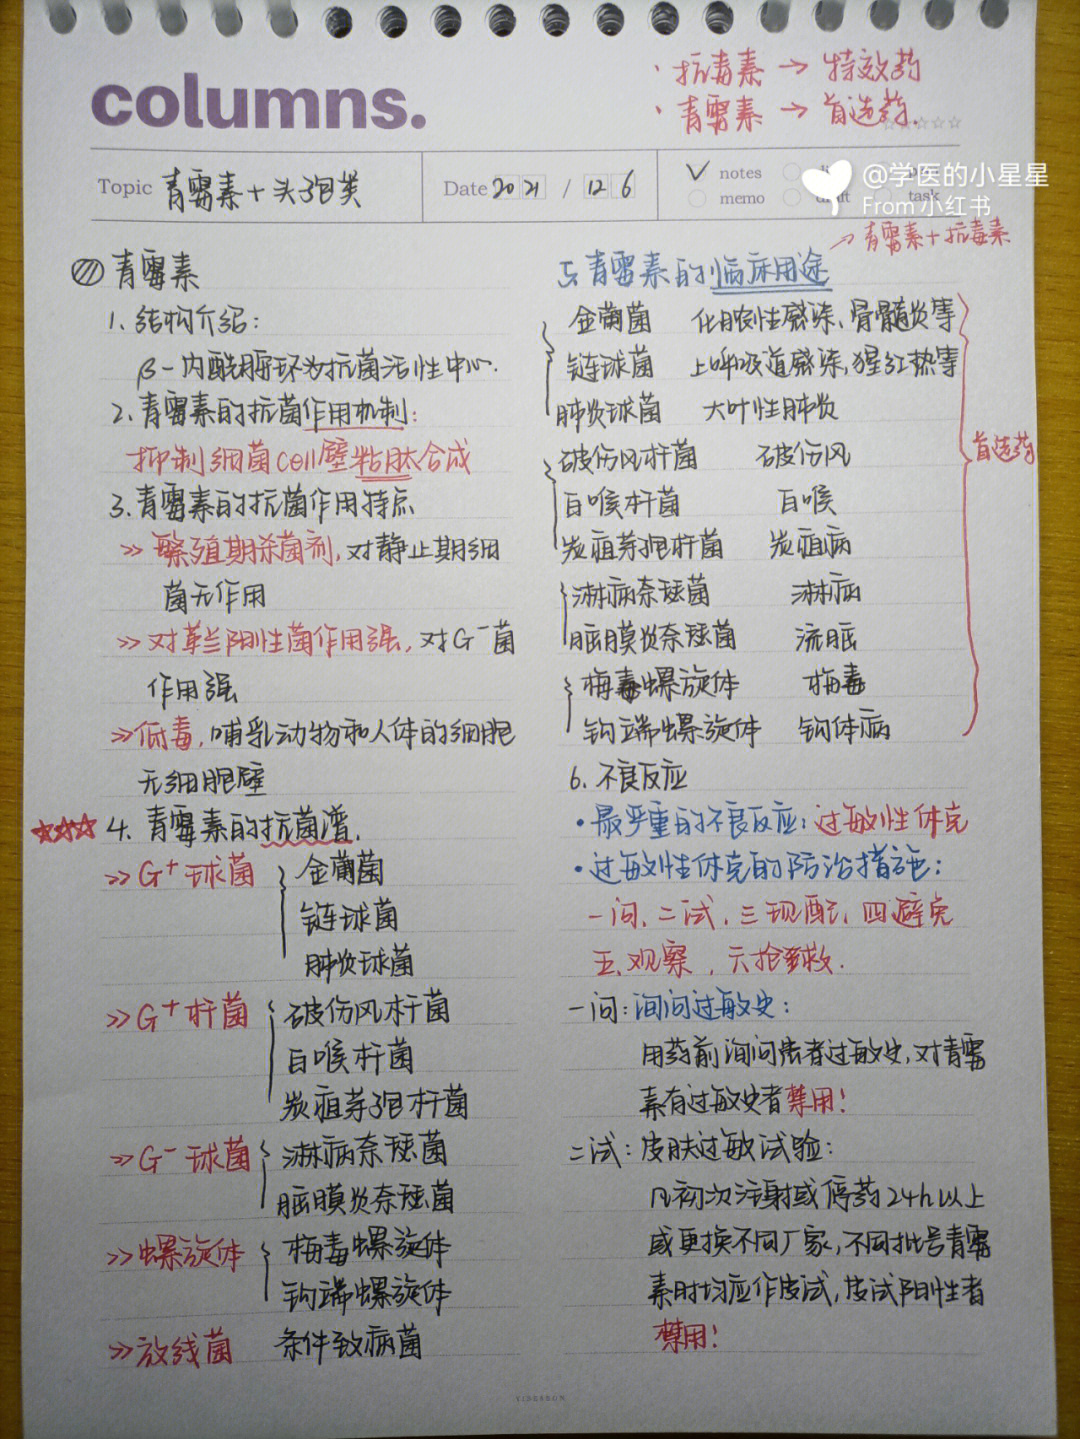 columns.
· 抗毒素 → 特效药
· 青霉素 → 首选药.
Topic 青霉素+头孢类
Date 2021 / 12 6
notes
memo
task
@学医的小星星
From 小红书
→ 青霉素+抗毒素
青霉素
1. 结构介绍:
β-内酰胺环为抗菌活性中心.
2. 青霉素的抗菌作用机制:
抑制细菌cell壁粘肽合成
3. 青霉素的抗菌作用特点
>> 繁殖期杀菌剂, 对静止期细
菌无作用
>> 对革兰阴性菌作用强, 对G⁻菌
作用强
>> 低毒, 哺乳动物和人体的细胞
无细胞壁
☆☆☆ 4. 青霉素的抗菌谱.
>> G⁺球菌 { 金葡菌
链球菌
肺炎球菌
>> G⁺杆菌 { 破伤风杆菌
白喉杆菌
炭疽芽孢杆菌
>> G⁻球菌 { 淋病奈瑟菌
脑膜炎奈瑟菌
>> 螺旋体 { 梅毒螺旋体
钩端螺旋体
>> 放线菌 条件致病菌
5. 青霉素的临床用途
金葡菌 化脓性感染、骨髓炎等
链球菌 上呼吸道感染, 猩红热等
肺炎球菌 大叶性肺炎
破伤风杆菌 破伤风
白喉杆菌 白喉
炭疽芽孢杆菌 炭疽病
淋病奈瑟菌 淋病
脑膜炎奈瑟菌 流脑
梅毒螺旋体 梅毒
钩端螺旋体 钩体病
首选药
6. 不良反应
• 最严重的不良反应: 过敏性休克
• 过敏性休克的防治措施:
一问、二试、三现配、四避免
五观察, 六抢救.
一问: 询问过敏史:
用药前询问患者过敏史, 对青霉
素有过敏史者禁用!
二试: 皮肤过敏试验:
凡初次注射或停药24h以上
或更换不同厂家, 不同批号青霉
素时均应作皮试, 皮试阳性者
禁用!